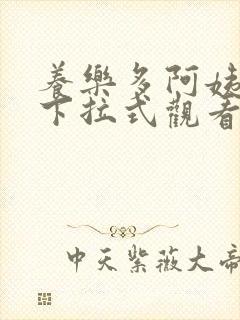 養樂多阿姨
下拉式觀看
中天紫薇大帝